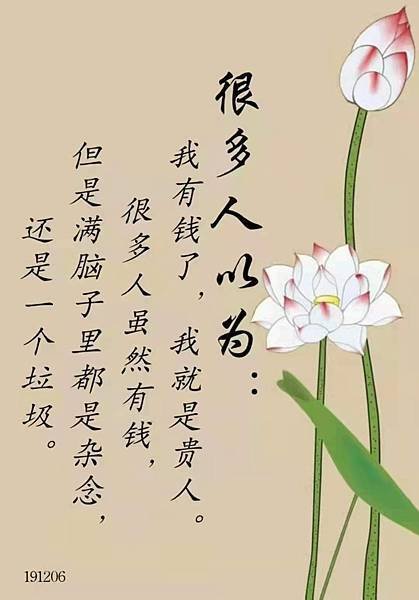 很多人以为：
我有钱了，我就是贵人。
很多人虽然有钱，
但是满脑子里都是杂念，
还是一个垃圾。
191206